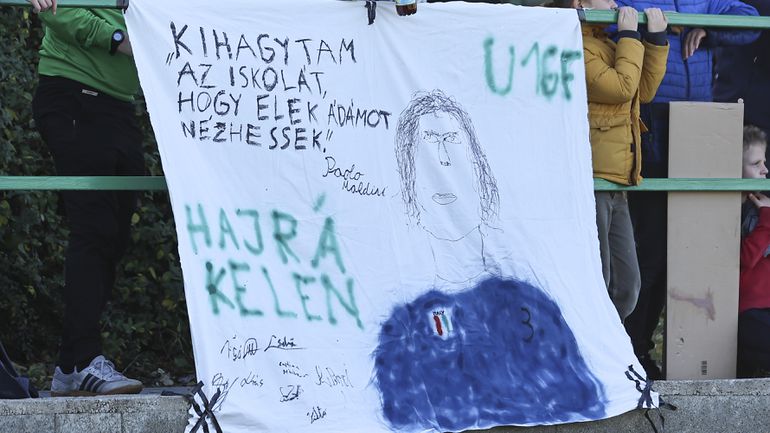 „KIHAGYTAM
AZ ISKOLÁT,
HOGY ELEK ÁDÁMOT
NÉZHESSEK."
Paolo
Maldini
U16F
HAJRÁ
KELEN
ITALY
3.